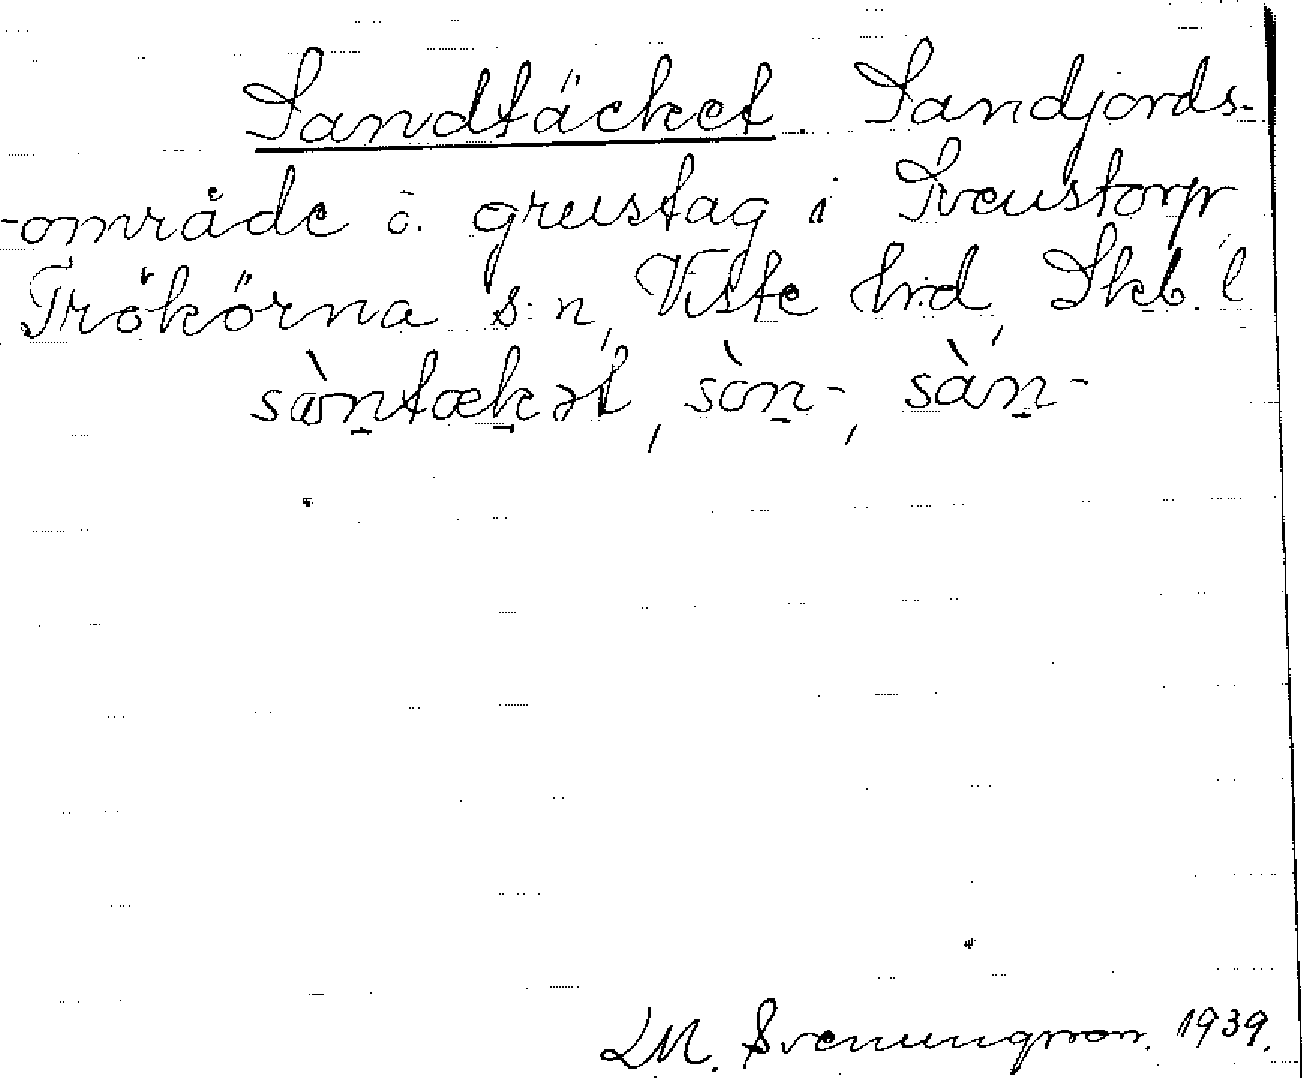 Sandtäcket Sandjords-
-område o. grustag i Svenstorp
Trökörna s:n, Viste hrd, Skb. l
sòntækət, sòn-, sàn-
LM. Svenungsson. 1939.